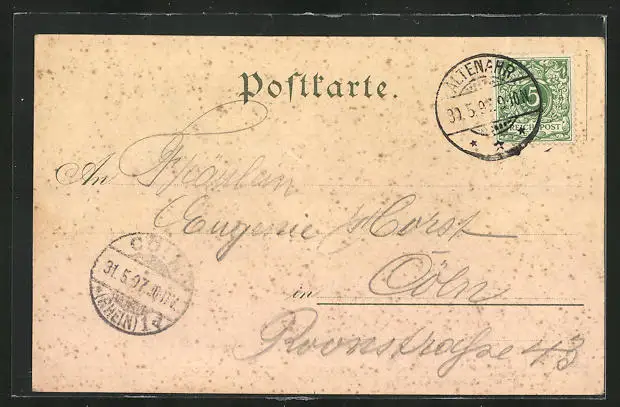 Postkarte.
ALTENAHR
30.5.97. 9-10.N.
5
REICHSPOST
An Fräulein
Eugenie Horst
in Cöln
Roonstraße 43
CÖLN
31.5.97
(RHEIN) 1d